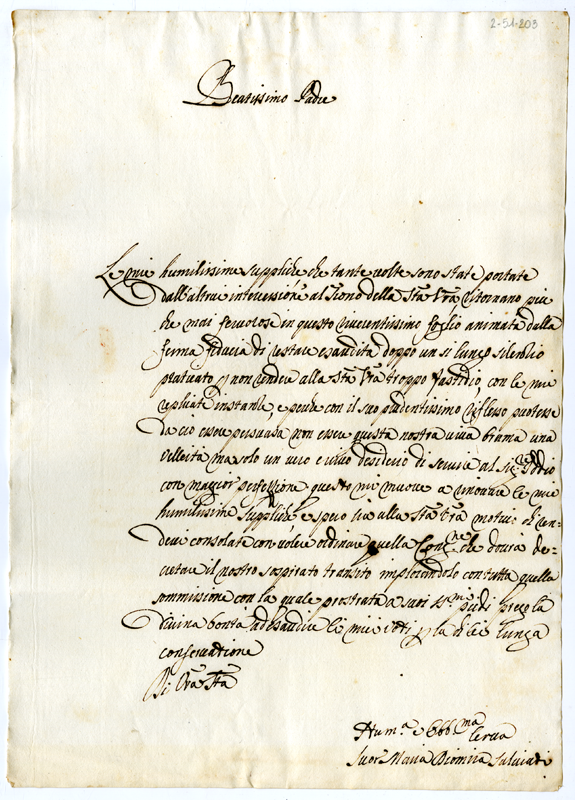 2-51-203
Beatissimo Padre
Le mie humilissime suppliche che tante volte sono state portate
dall'altrui intercessione al Trono della Stà Vrã ritornano più
che mai fervorose in questo riverentissimo foglio animate dalla
ferma fiducia di restare esaudita doppo un sì lungo silentio
praticato p non rendere alla Stà Vrã troppo fastidio, con le mie
replicate instanze, e perche con il suo prudentissimo riflesso puotesse
da ciò essere persuasa non essere questa nostra viva brama una
velleità ma solo un vero e vivo desiderio di servire al Sig.re Iddio
con magior perfettione questo mi muove a rinovare le mie
humilissime suppliche e spero sia alla Stà Vrã motivo di ren-
derci consolate con volere ordinare quella Cong.ne che dovrà de-
cretare il nostro sospirato transito implorandolo con tutta quella
sommissione con la quale prostrata a suoi S.mi piedi prego la
divina bontà ad esaudire li miei voti, p la di lei lunga
conservatione
Di Vrã Stà
Hum.a e Obb.ma serva
Suor Maria Diomira Salviati